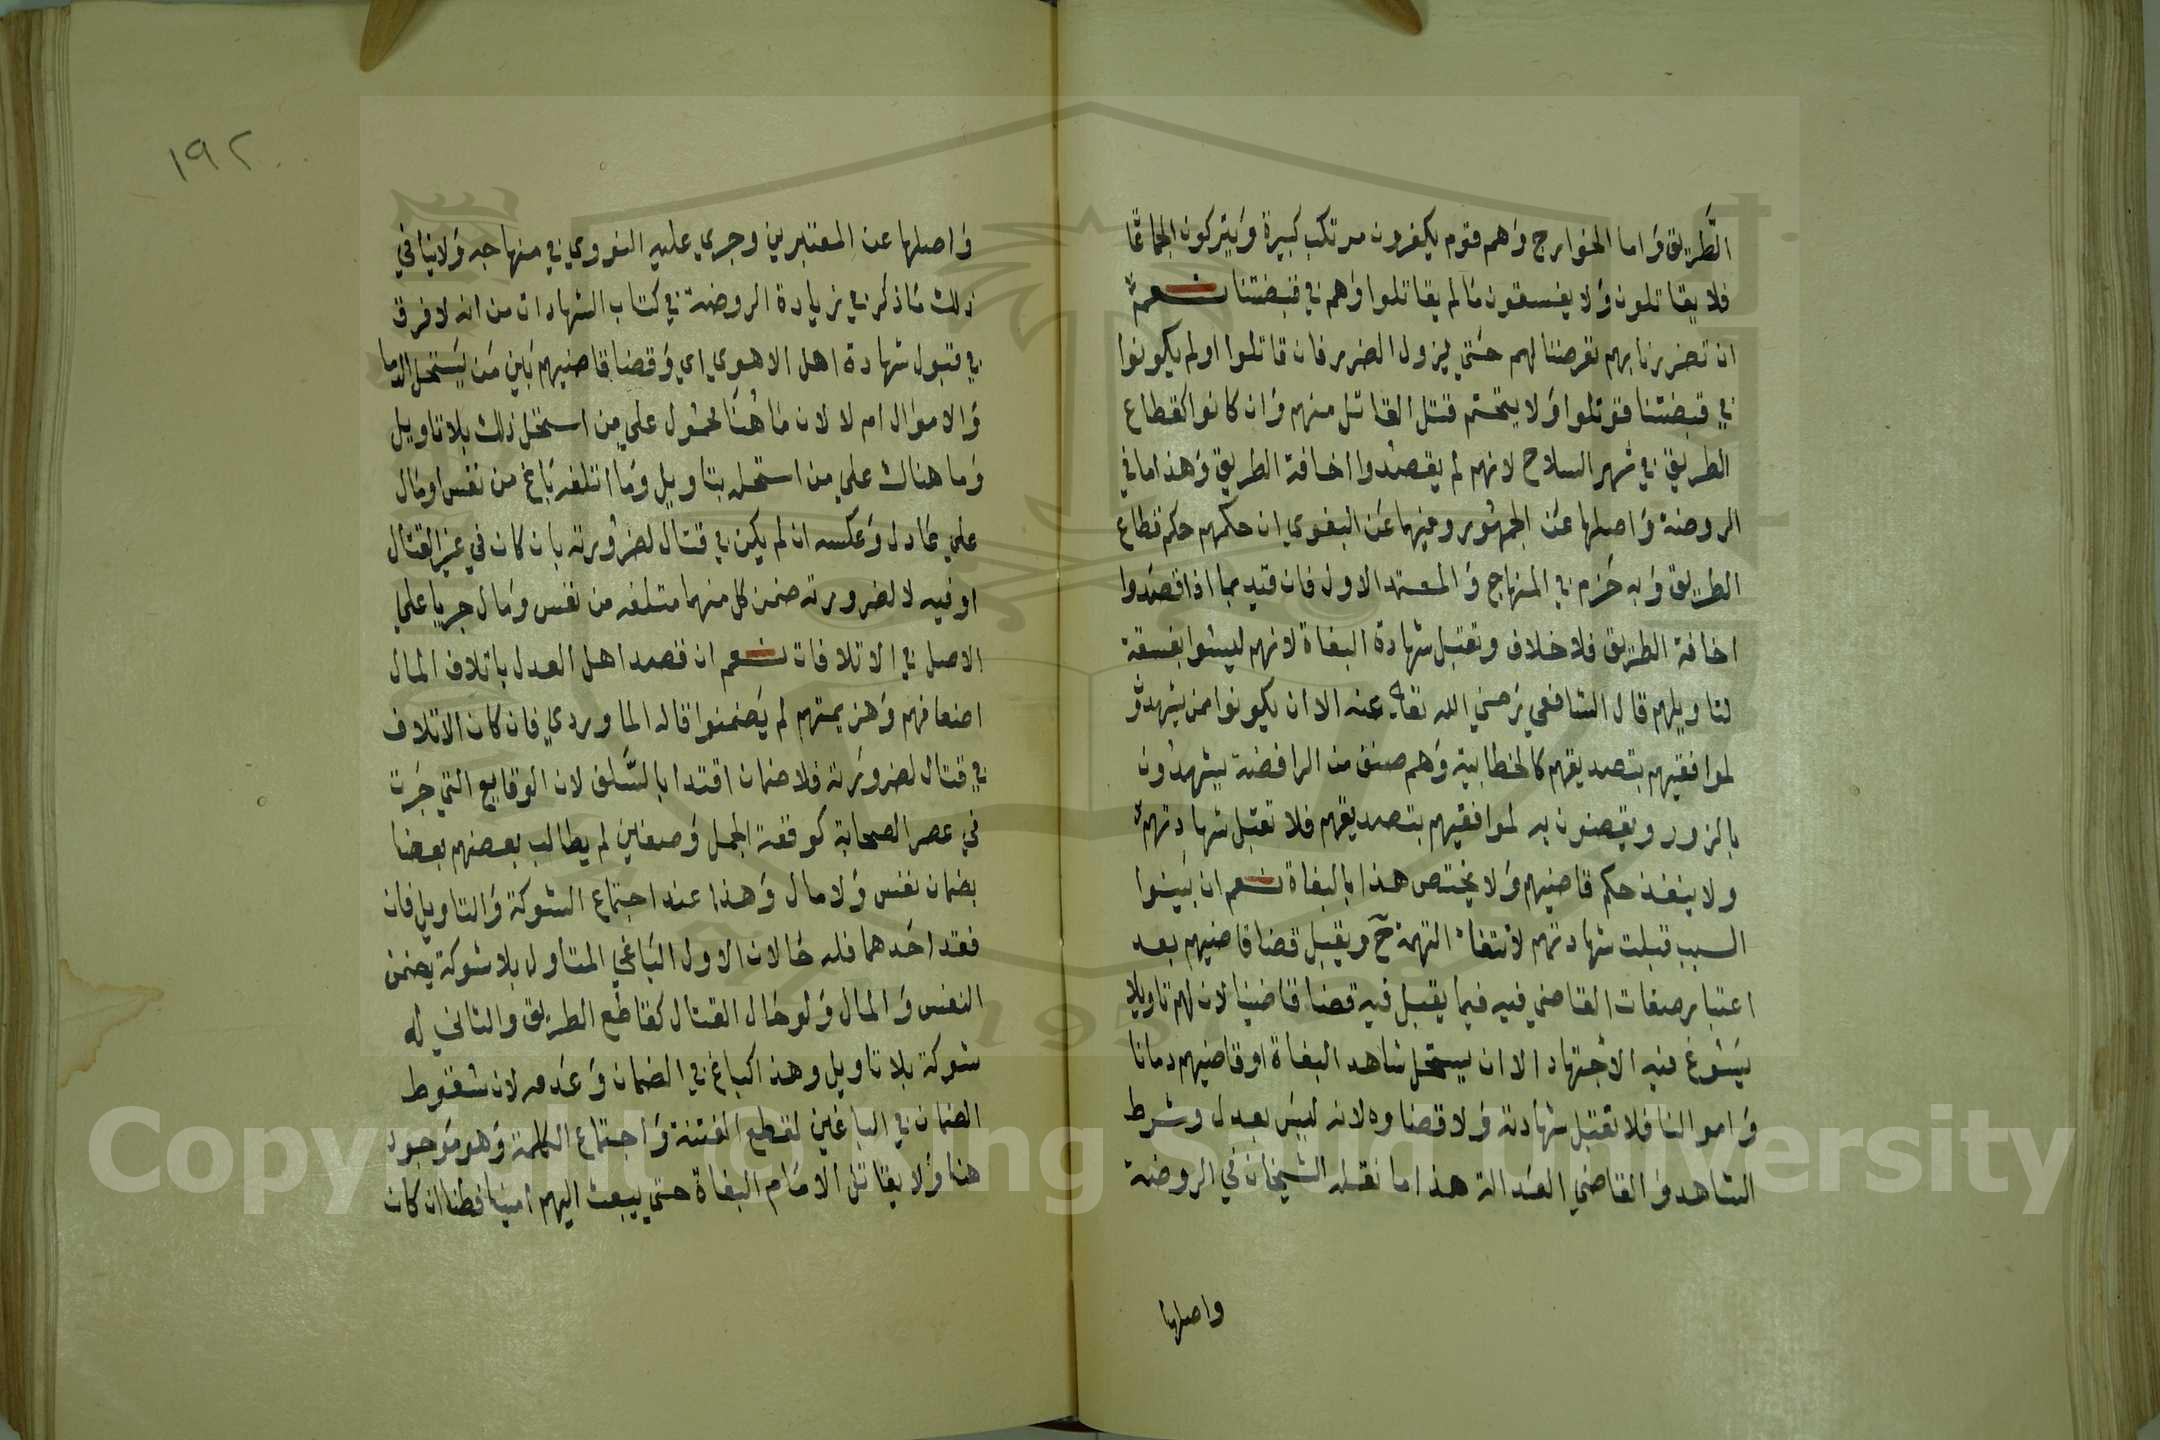 الطريق واما الخوارج وهم قوم يكفرون مرتكب كبيرة ويتركون الجماعات
فلا يقاتلون ولا يفسقون مالم يقاتلوا وهم في قبضتنا نعم
ان تضررنا بهم تعرضنا لهم حتي يزول الضرر فان قاتلوا اولم يكونوا
في قبضتنا قوتلوا ولا يتحتم قتل القاتل منهم وان كانوا كقطاع
الطريق في شهر السلاح لانهم لم يقصدوا اخافة الطريق وهذا ما في
الروضة واصلها عن الجمهور وفيهما عن البغوي ان حكمهم حكم قطاع
الطريق وبه جزم في المنهاج والمعتمد الاول فان قيد بما اذا قصدوا
اخافة الطريق فلا خلاف وتقبل شهادة البغاة لانهم ليسوا بفسقة
لتاويلهم قال الشافعي رضي الله تعا عنه الا ان يكونوا ممن يشهدون
لموافقيهم بتصديقهم كالخطابية وهم صنف من الرافضة يشهدون
بالزور ويقضون به لموافقيهم بتصديقهم فلا تقبل شهادتهم
ولا ينفذ حكم قاضيهم ولا يختص هذا بالبغاة نعم ان بينوا
السبب قبلت شهادتهم لانتفاء التهمة ح ويقبل قضا قاضيهم بعد
اعتبار صفات القاضي فيه فيما يقبل فيه قضا قاضينا لان لهم تاويلا
يسوغ فيه الاجتهاد الا ان يستحل شاهد البغاة او قاضيهم دمانا
واموالنا فلا تقبل شهادته ولا قضاوه لانه ليس بعدل وشرط
الشاهد والقاضي العدالة هذا ما نقله الشيخان في الروضة
واصلها
١٩٢
واصلها عن المعتبرين وجري عليه النووي في منهاجه ولا ينافي
ذلك ما ذكر في زيادة الروضة في كتاب الشهادات من انه لا فرق
في قبول شهادة اهل الاهوي اي وقضا قاضيهم بين من يستحل الدما
والاموال ام لا لان ما هنا محمول علي من استحل ذلك بلا تاويل
وما هناك علي من استحله بتاويل وما اتلفه باغ من نفس اومال
علي عادل وعكسه ان لم يكن في قتال لضرورته بان كان في غير القتال
او فيه لا لضرورته ضمن كل منهما متلفه من نفس ومال جريا علي
الاصل في الاتلافات نعم ان قصد اهل العدل باتلاف المال
اضعافهم وهزيمتهم لم يضمنوا قاله الماوردي فان كان الاتلاف
في قتال لضرورته فلا ضمان اقتدا بالسلف لان الوقايع التي جرت
في عصر الصحابة كوقعة الجمل وصفين لم يطالب بعضهم بعضا
بضمان نفس ولا مال وهذا عند اجتماع الشوكة والتاويل فان
فقد احدهما فله حالان الاول الباغي المتاول بلا شوكة يضمن
النفس والمال ولو حال القتال كقاطع الطريق والثاني له
شوكة بلا تاويل وهذا كباغ في الضمان وعدمه لان سقوط
الضمان في الباغين لقطع الفتنة واجتماع الكلمة وهو موجود
هنا ولا يقاتل الامام البغاة حتي يبعث اليهم امينا فطنا ان كان